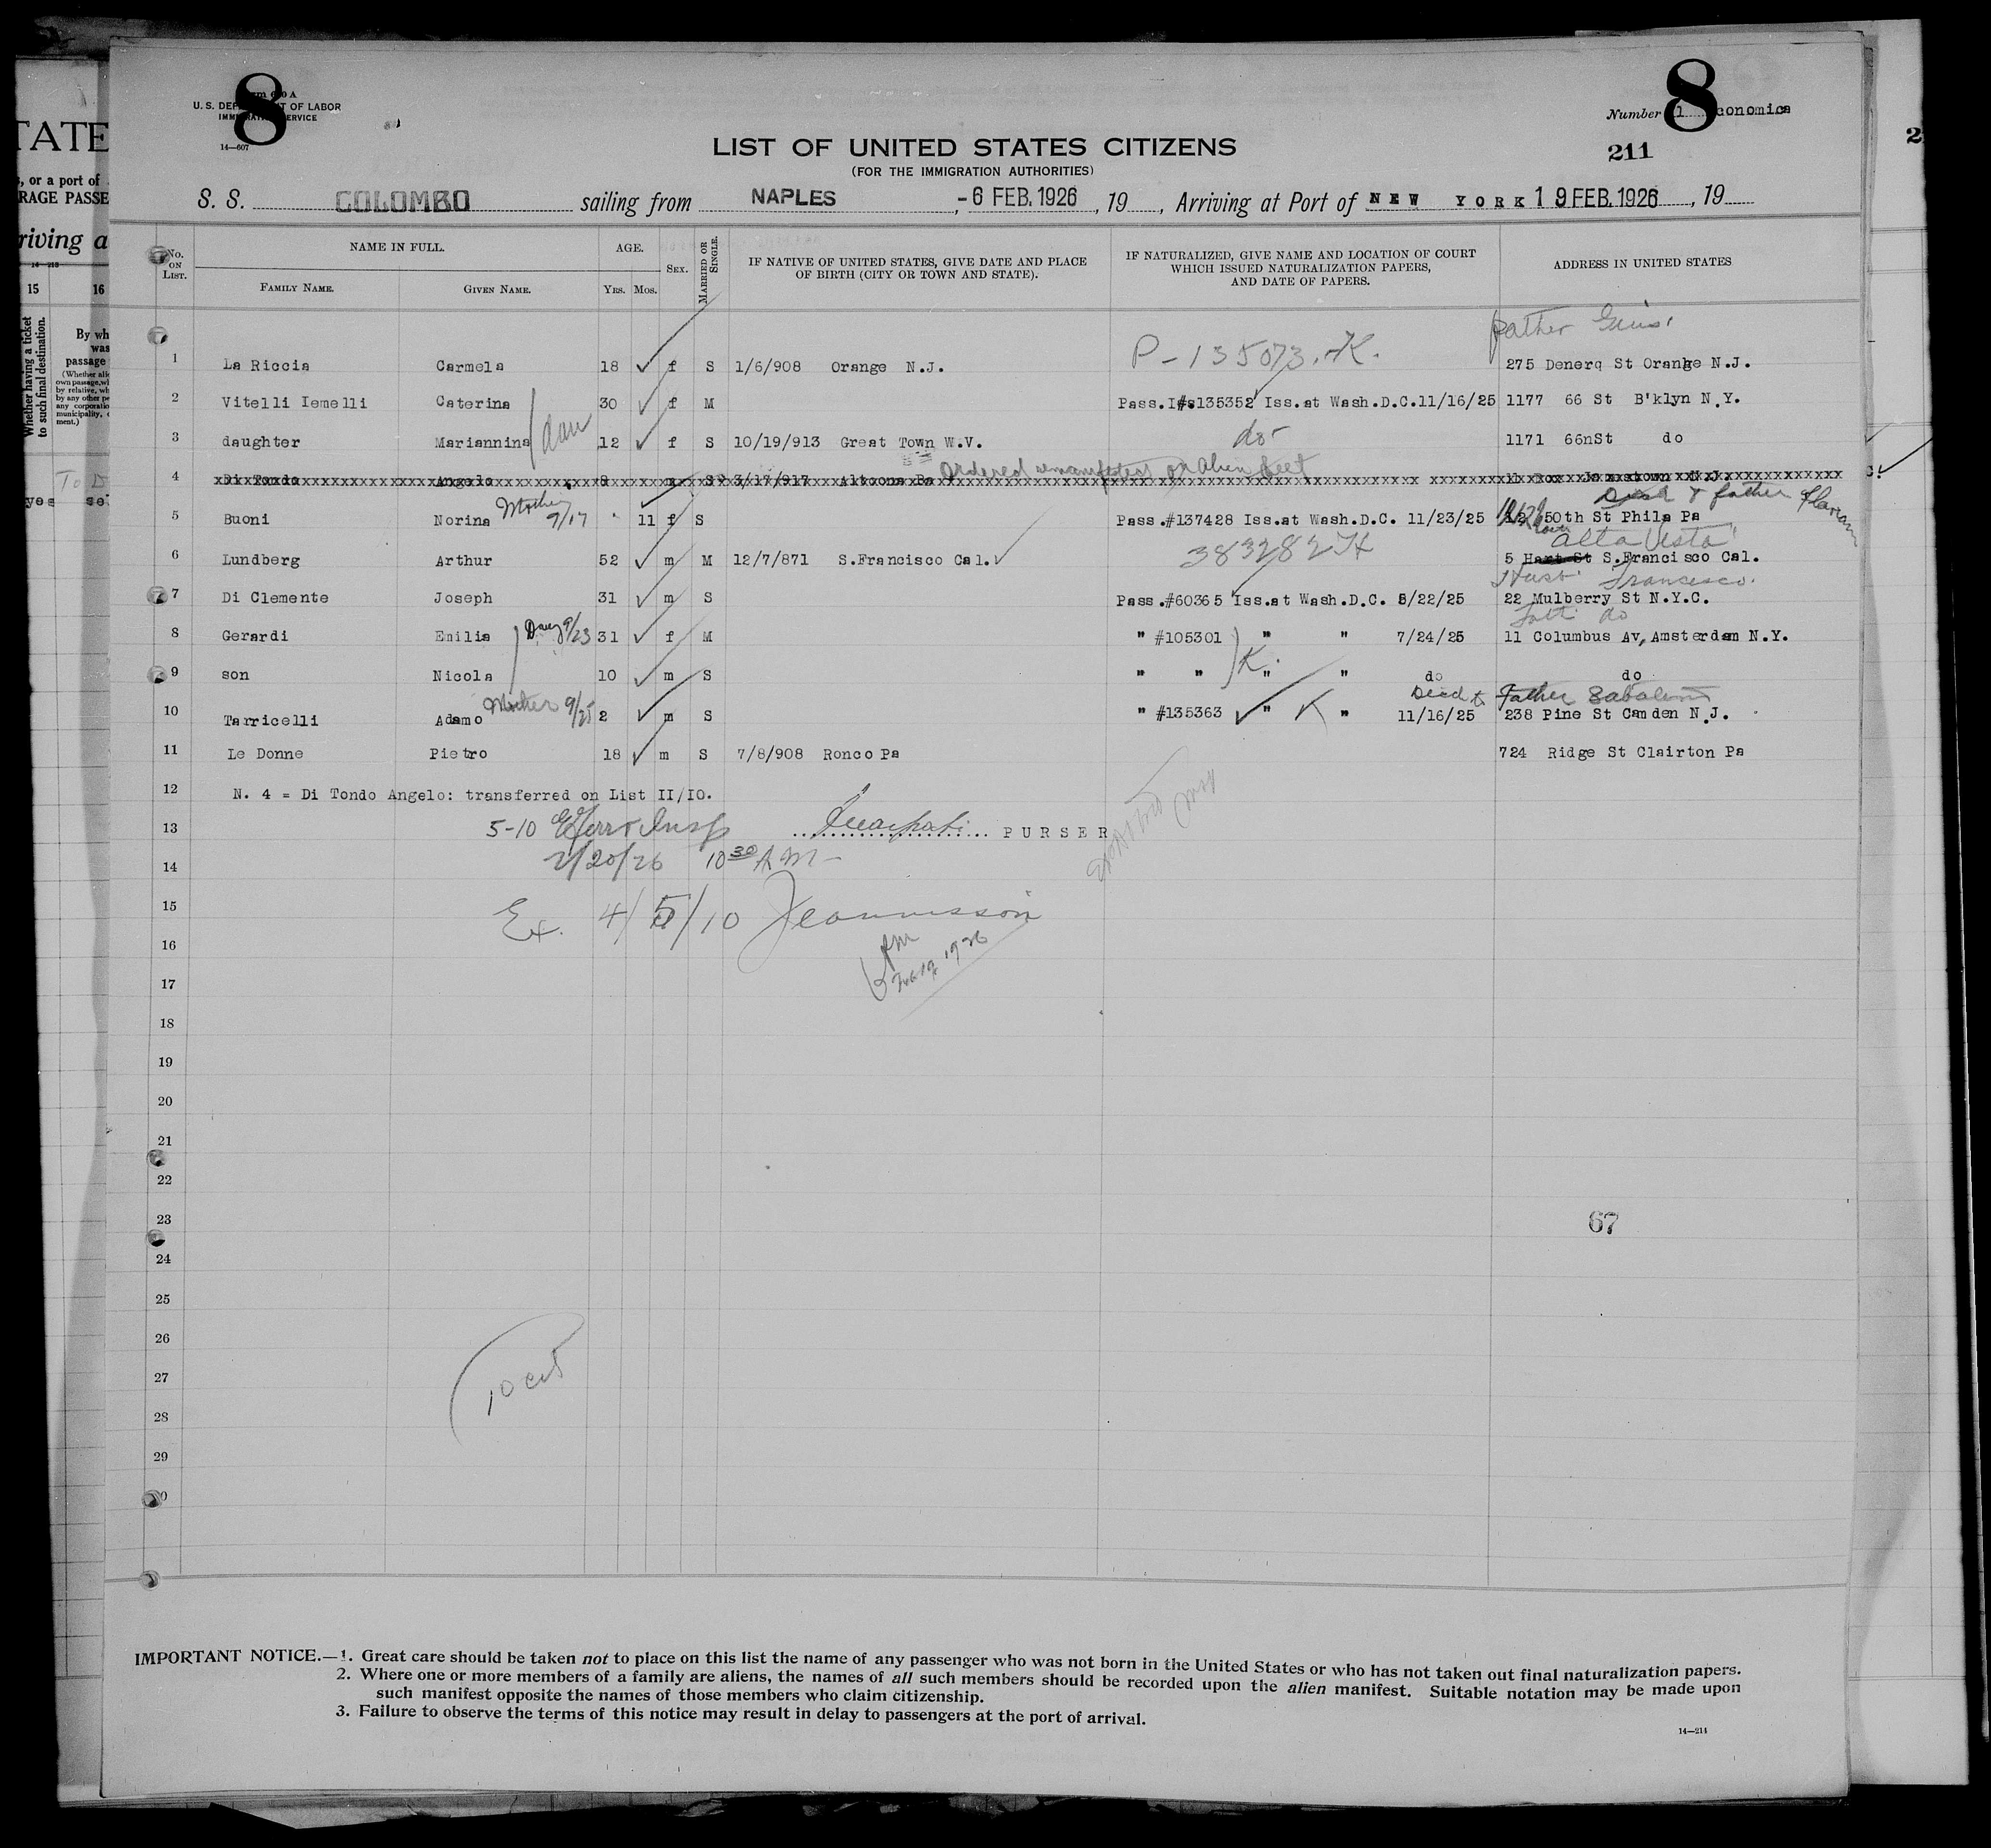 TATE
s, or a port of
RAGE PASSE
riving a
14—213
15 16
Whether having a ticket to such final destination.
By wh
was
passage
yes se
To D
8 8
U. S. DEP T OF LABOR
14—607
Number 1 conomica
211
LIST OF UNITED STATES CITIZENS
(FOR THE IMMIGRATION AUTHORITIES)
S. S. COLOMBO sailing from NAPLES, -6 FEB. 1926, 19, Arriving at Port of NEW YORK 19 FEB. 1926, 19
No. ON LIST. NAME IN FULL. AGE. SEX. MARRIED OR SINGLE. IF NATIVE OF UNITED STATES, GIVE DATE AND PLACE OF BIRTH (CITY OR TOWN AND STATE). IF NATURALIZED, GIVE NAME AND LOCATION OF COURT WHICH ISSUED NATURALIZATION PAPERS, AND DATE OF PAPERS. ADDRESS IN UNITED STATES
FAMILY NAME. GIVEN NAME. YRS. MOS.
Father
P-135073.K.
1 La Riccia Carmela 18 f S 1/6/908 Orange N.J. 275 Denerq St Orange N.J.
2 Vitelli Iemelli Caterina 30 f M Pass.I#s135352 Iss.at Wash.D.C.11/16/25 1177 66 St B'klyn N.Y.
dau
do
3 daughter Mariannina 12 f S 10/19/913 Great Town W.V. 1171 66nSt do
Ordered remanifested on alien sheet
4 Di Tondo Angelo 8 m S 3/17/917 Altoona Pa 11 Box Jamestown N.J.
Mother 9/17
& father
5 Buoni Norina 11 f S Pass.#137428 Iss.at Wash.D.C. 11/23/25 50th St Phila Pa
Alta Vista
383282
6 Lundberg Arthur 52 m M 12/7/871 S.Francisco Cal. 5 Hart St S.Francisco Cal.
Husb. Francesco.
7 Di Clemente Joseph 31 m S Pass.#60365 Iss.at Wash.D.C. 8/22/25 22 Mulberry St N.Y.C.
do
8 Gerardi Emilia 31 f M " #105301 " " 7/24/25 11 Columbus Av,Amsterdam N.Y.
K.
9 son Nicola 10 m S " " " " do do
Mother 9/25
Father
10 Tarricelli Adamo 2 m S " #135363 " K " 11/16/25 238 Pine St Camden N.J.
11 Le Donne Pietro 18 m S 7/8/908 Ronco Pa 724 Ridge St Clairton Pa
12 N. 4 = Di Tondo Angelo: transferred on List II/IO.
13 5-10 Insp PURSER
14 2/20/26 10 30 AM
15 Ex. 4/5/10
16
17
18
19
20
21
22
23
67
24
25
26
27
10 cit
28
29
0
IMPORTANT NOTICE.—1. Great care should be taken not to place on this list the name of any passenger who was not born in the United States or who has not taken out final naturalization papers.
2. Where one or more members of a family are aliens, the names of all such members should be recorded upon the alien manifest. Suitable notation may be made upon
such manifest opposite the names of those members who claim citizenship.
3. Failure to observe the terms of this notice may result in delay to passengers at the port of arrival.
14—214